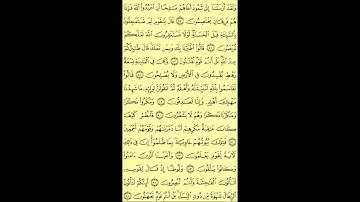 وَلَقَدْ أَرْسَلْنَآ إِلَىٰ ثَمُودَ أَخَاهُمْ صَٰلِحًا أَنِ ٱعْبُدُوا۟ ٱللَّهَ فَإِذَا
هُمْ فَرِيقَانِ يَخْتَصِمُونَ ٤٥ قَالَ يَٰقَوْمِ لِمَ تَسْتَعْجِلُونَ
بِٱلسَّيِّئَةِ قَبْلَ ٱلْحَسَنَةِ لَوْلَا تَسْتَغْفِرُونَ ٱللَّهَ لَعَلَّكُمْ
تُرْحَمُونَ ٤٦ قَالُوا۟ ٱطَّيَّرْنَا بِكَ وَبِمَن مَّعَكَ قَالَ طَٰٓئِرُكُمْ
عِندَ ٱللَّهِ بَلْ أَنتُمْ قَوْمٌ تُفْتَنُونَ ٤٧ وَكَانَ فِى ٱلْمَدِينَةِ تِسْعَةُ
رَهْطٍ يُفْسِدُونَ فِى ٱلْأَرْضِ وَلَا يُصْلِحُونَ ٤٨ قَالُوا۟
تَقَاسَمُوا۟ بِٱللَّهِ لَنُبَيِّتَنَّهُۥ وَأَهْلَهُۥ ثُمَّ لَنَقُولَنَّ لِوَلِيِّهِۦ مَا شَهِدْنَا
مَهْلِكَ أَهْلِهِۦ وَإِنَّا لَصَٰدِقُونَ ٤٩ وَمَكَرُوا۟ مَكْرًا
وَمَكَرْنَا مَكْرًا وَهُمْ لَا يَشْعُرُونَ ٥٠ فَٱنظُرْ كَيْفَ
كَانَ عَٰقِبَةُ مَكْرِهِمْ أَنَّا دَمَّرْنَٰهُمْ وَقَوْمَهُمْ أَجْمَعِينَ
٥١ فَتِلْكَ بُيُوتُهُمْ خَاوِيَةًۢ بِمَا ظَلَمُوٓا۟ إِنَّ فِى ذَٰلِكَ
لَءَايَةً لِّقَوْمٍ يَعْلَمُونَ ٥٢ وَأَنجَيْنَا ٱلَّذِينَ ءَامَنُوا۟
وَكَانُوا۟ يَتَّقُونَ ٥٣ وَلُوطًا إِذْ قَالَ لِقَوْمِهِۦٓ
أَتَأْتُونَ ٱلْفَٰحِشَةَ وَأَنتُمْ تُبْصِرُونَ ٥٤ أَئِنَّكُمْ لَتَأْتُونَ
ٱلرِّجَالَ شَهْوَةً مِّن دُونِ ٱلنِّسَآءِ بَلْ أَنتُمْ قَوْمٌ تَجْهَلُونَ ٥٥